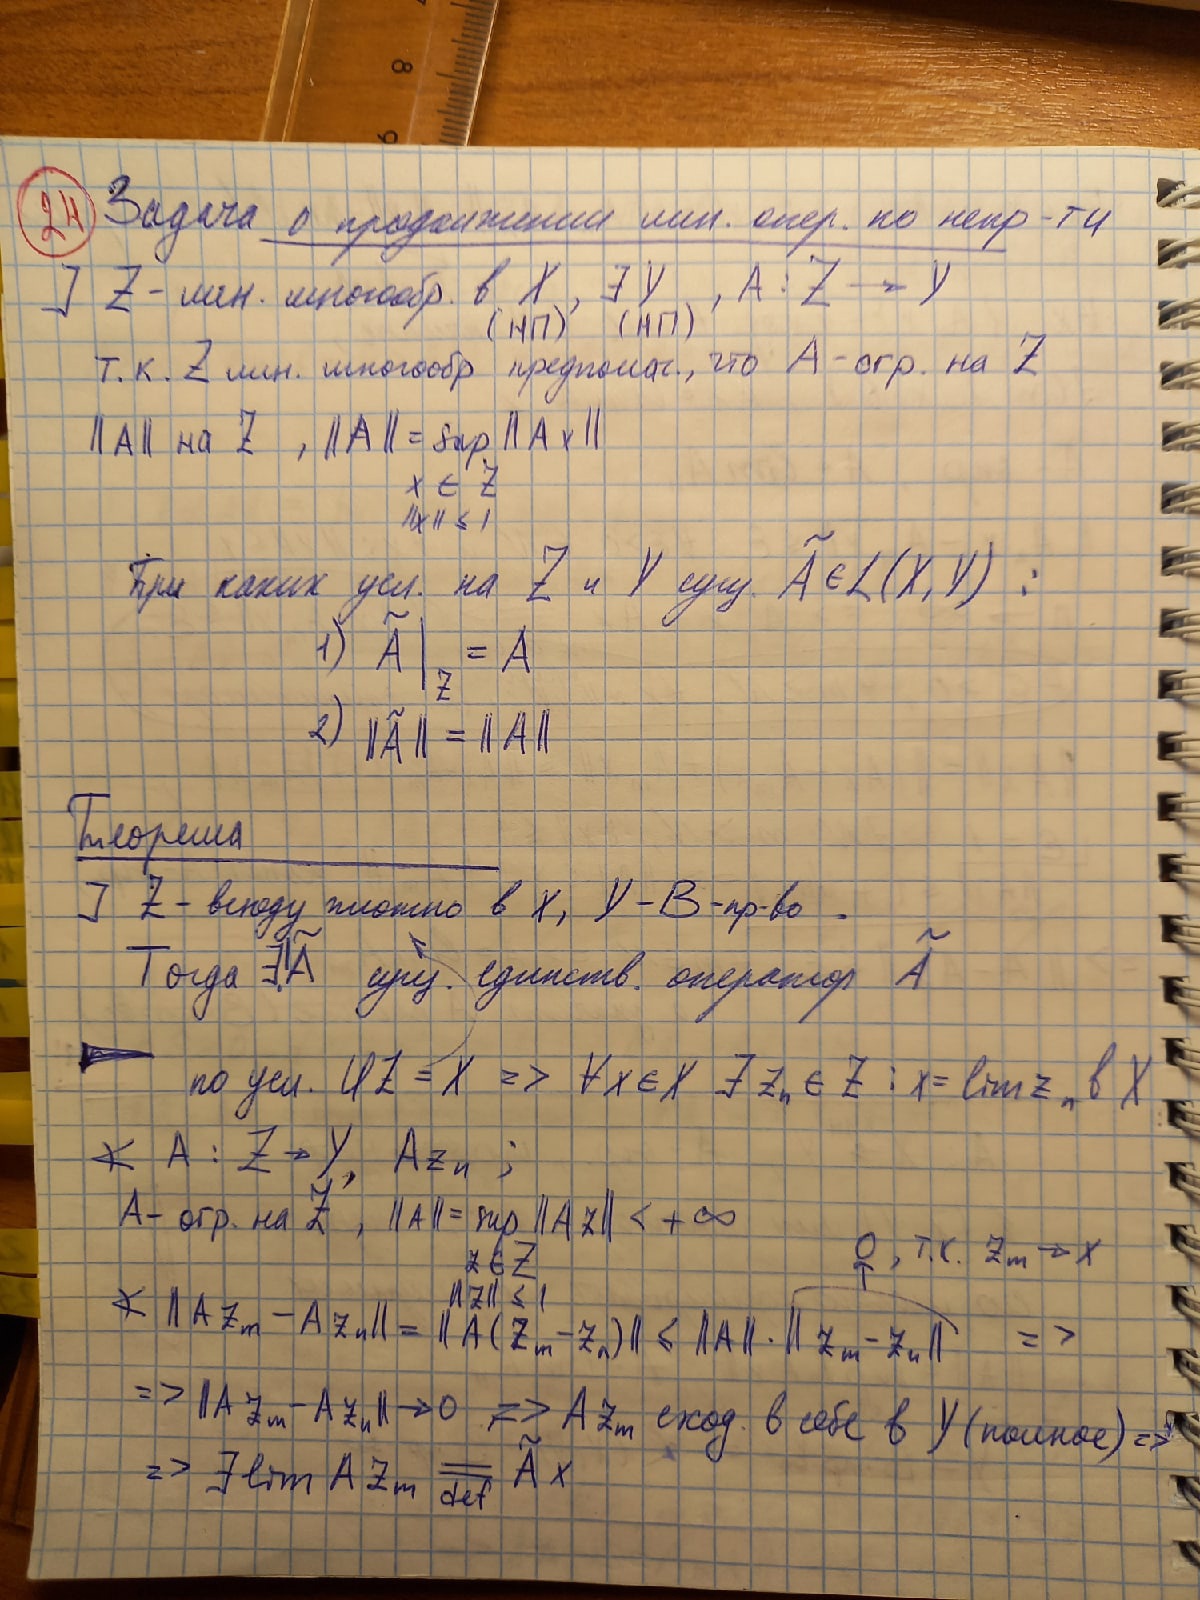 8
9
24 Задача о продолжении лин. опер. по непр-ти
] Z - лин. многообр. в X, ∃ Y , A : Z → Y
(НП) (НП)
т.к. Z лин. многообр предполаг., что A - огр. на Z
||A|| на Z , ||A|| = sup ||Ax||
x ∈ Z
||x|| ≤ 1
При каких усл. на Z и Y сущ. Ã ∈ L(X, Y) :
1) Ã|_Z = A
2) ||Ã|| = ||A||
Теорема
] Z - всюду плотно в X, Y - B - пр-во .
Тогда ∃! Ã сущ. единств. оператор Ã
по усл. Cl Z = X => ∀ x ∈ X ∃ z_n ∈ Z : x = lim z_n в X
∢ A : Z → Y, A z_n ;
A - огр. на Z , ||A|| = sup ||A z|| < + ∞
z ∈ Z
||z|| ≤ 1
0 , т.к. z_m → x
∢ ||A z_m - A z_n|| = ||A(z_m - z_n)|| ≤ ||A|| · ||z_m - z_n|| =>
=> ||A z_m - A z_n|| → 0 => A z_m сход. в себе в Y (полное) =>
=> ∃ lim A z_m =_def Ã x